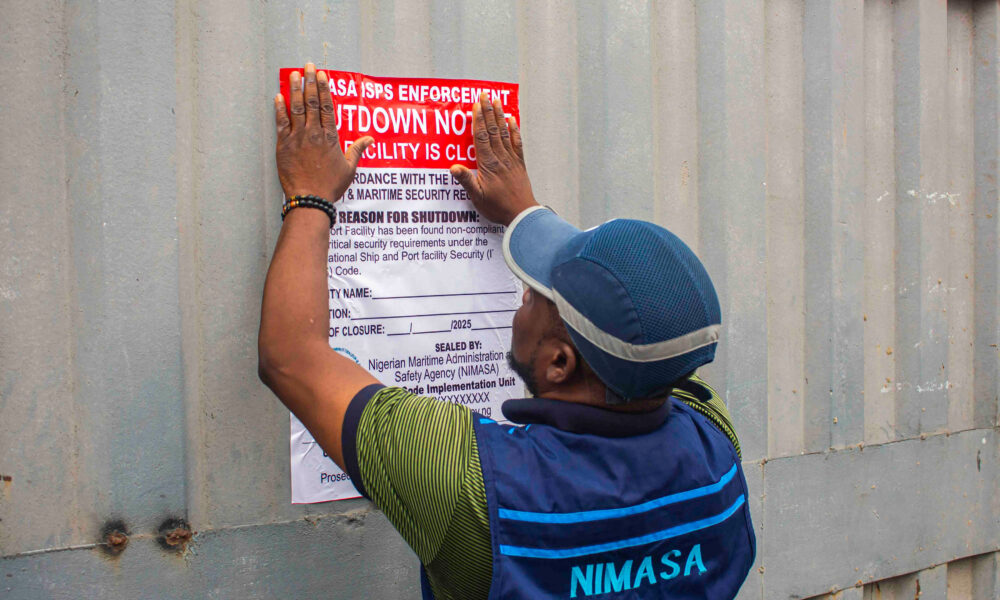 ASA ISPS ENFORCEMENT
UTDOWN NOT
FACILITY IS CLO
CORDANCE WITH THE IS
& MARITIME SECURITY REG
REASON FOR SHUTDOWN:
ort Facility has been found non-compliant
ritical security requirements under the
ational Ship and Port facility Security (I
) Code.
TY NAME:
TION:
OF CLOSURE: ___/___/2025
SEALED BY:
Nigerian Maritime Administration a
Safety Agency (NIMASA)
ode Implementation Unit
XXXXXXXX
y.ng
Prosec
NIMASA